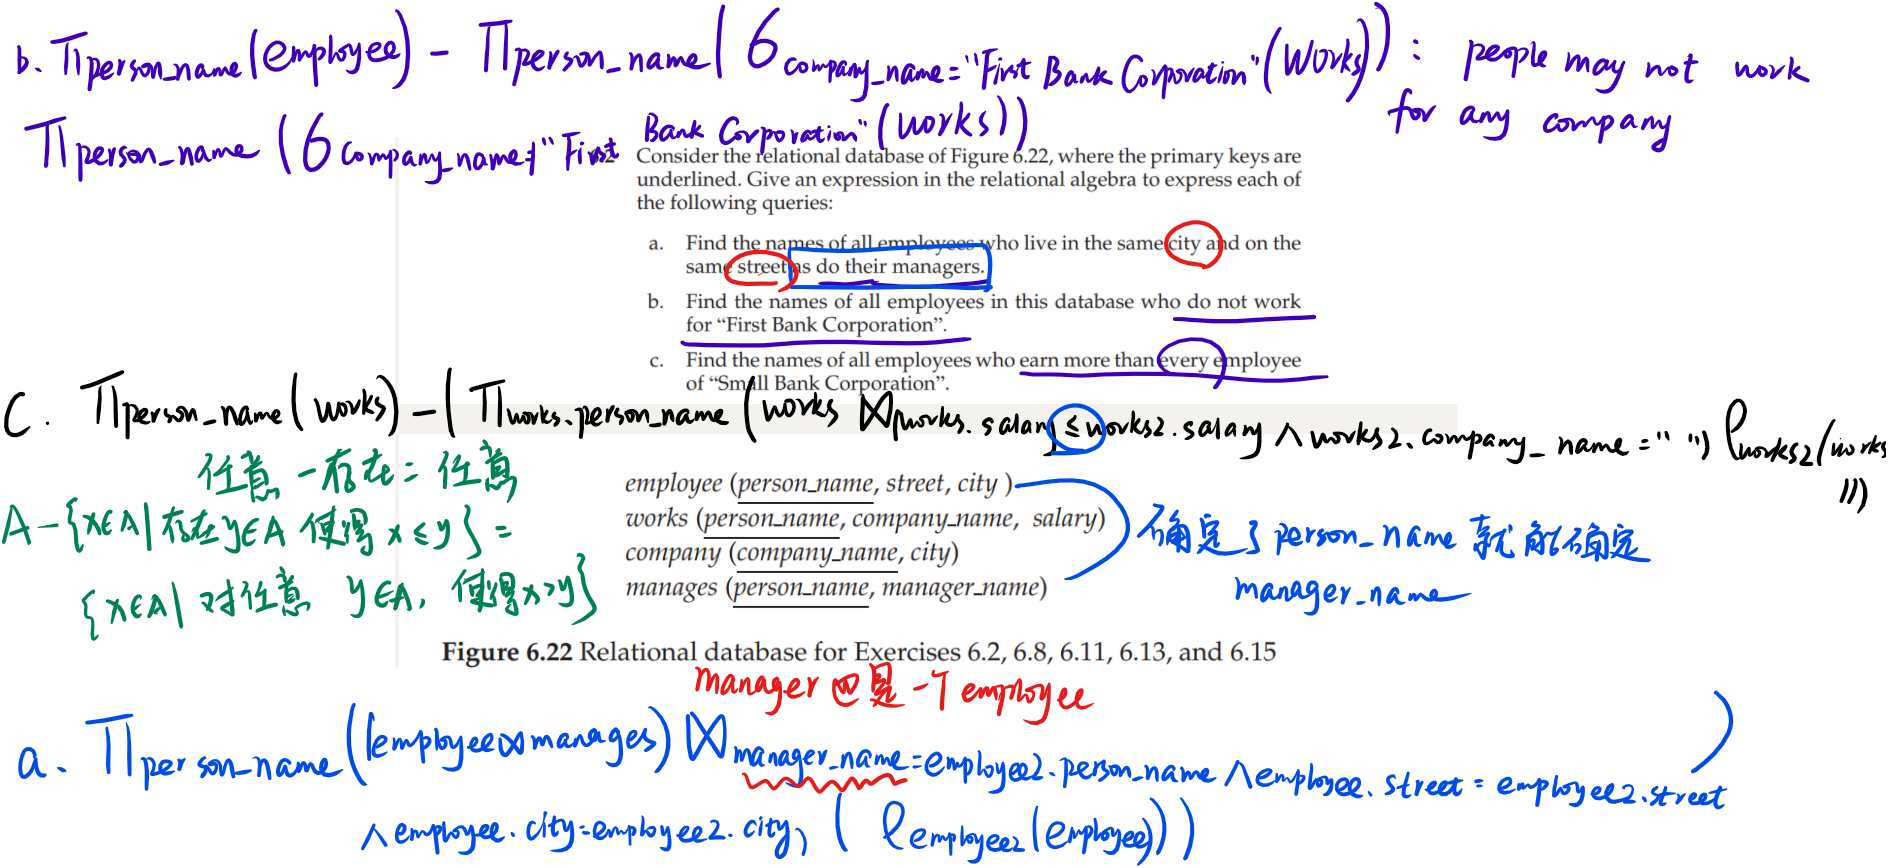 b. Πperson_name(employee) - Πperson_name(σcompany_name="First Bank Corporation"(works)) : people may not work
for any company
Πperson_name(σcompany_name≠"First Bank Corporation"(works))
Consider the relational database of Figure 6.22, where the primary keys are
underlined. Give an expression in the relational algebra to express each of
the following queries:
a. Find the names of all employees who live in the same city and on the
same street as do their managers.
b. Find the names of all employees in this database who do not work
for “First Bank Corporation”.
c. Find the names of all employees who earn more than every employee
of “Small Bank Corporation”.
C. Πperson_name(works) - (Πworks.person_name(works ⋈(works.salary ≤ works2.salary ∧ works2.company_name = " ") ρworks2(works)))
任意 - 存在 = 任意
A - {x∈A | 存在y∈A 使得 x ≤ y} =
{x∈A | 对任意 y∈A, 使得x>y}
employee (person_name, street, city)
works (person_name, company_name, salary)
company (company_name, city)
manages (person_name, manager_name)
确定了person_name就能确定
manager_name
Figure 6.22 Relational database for Exercises 6.2, 6.8, 6.11, 6.13, and 6.15
manager也是一个employee
a. Πperson_name((employee⋈manages) ⋈manager_name=employee2.person_name ∧ employee.street = employee2.street
∧ employee.city=employee2.city, (ρemployee2(employee)))